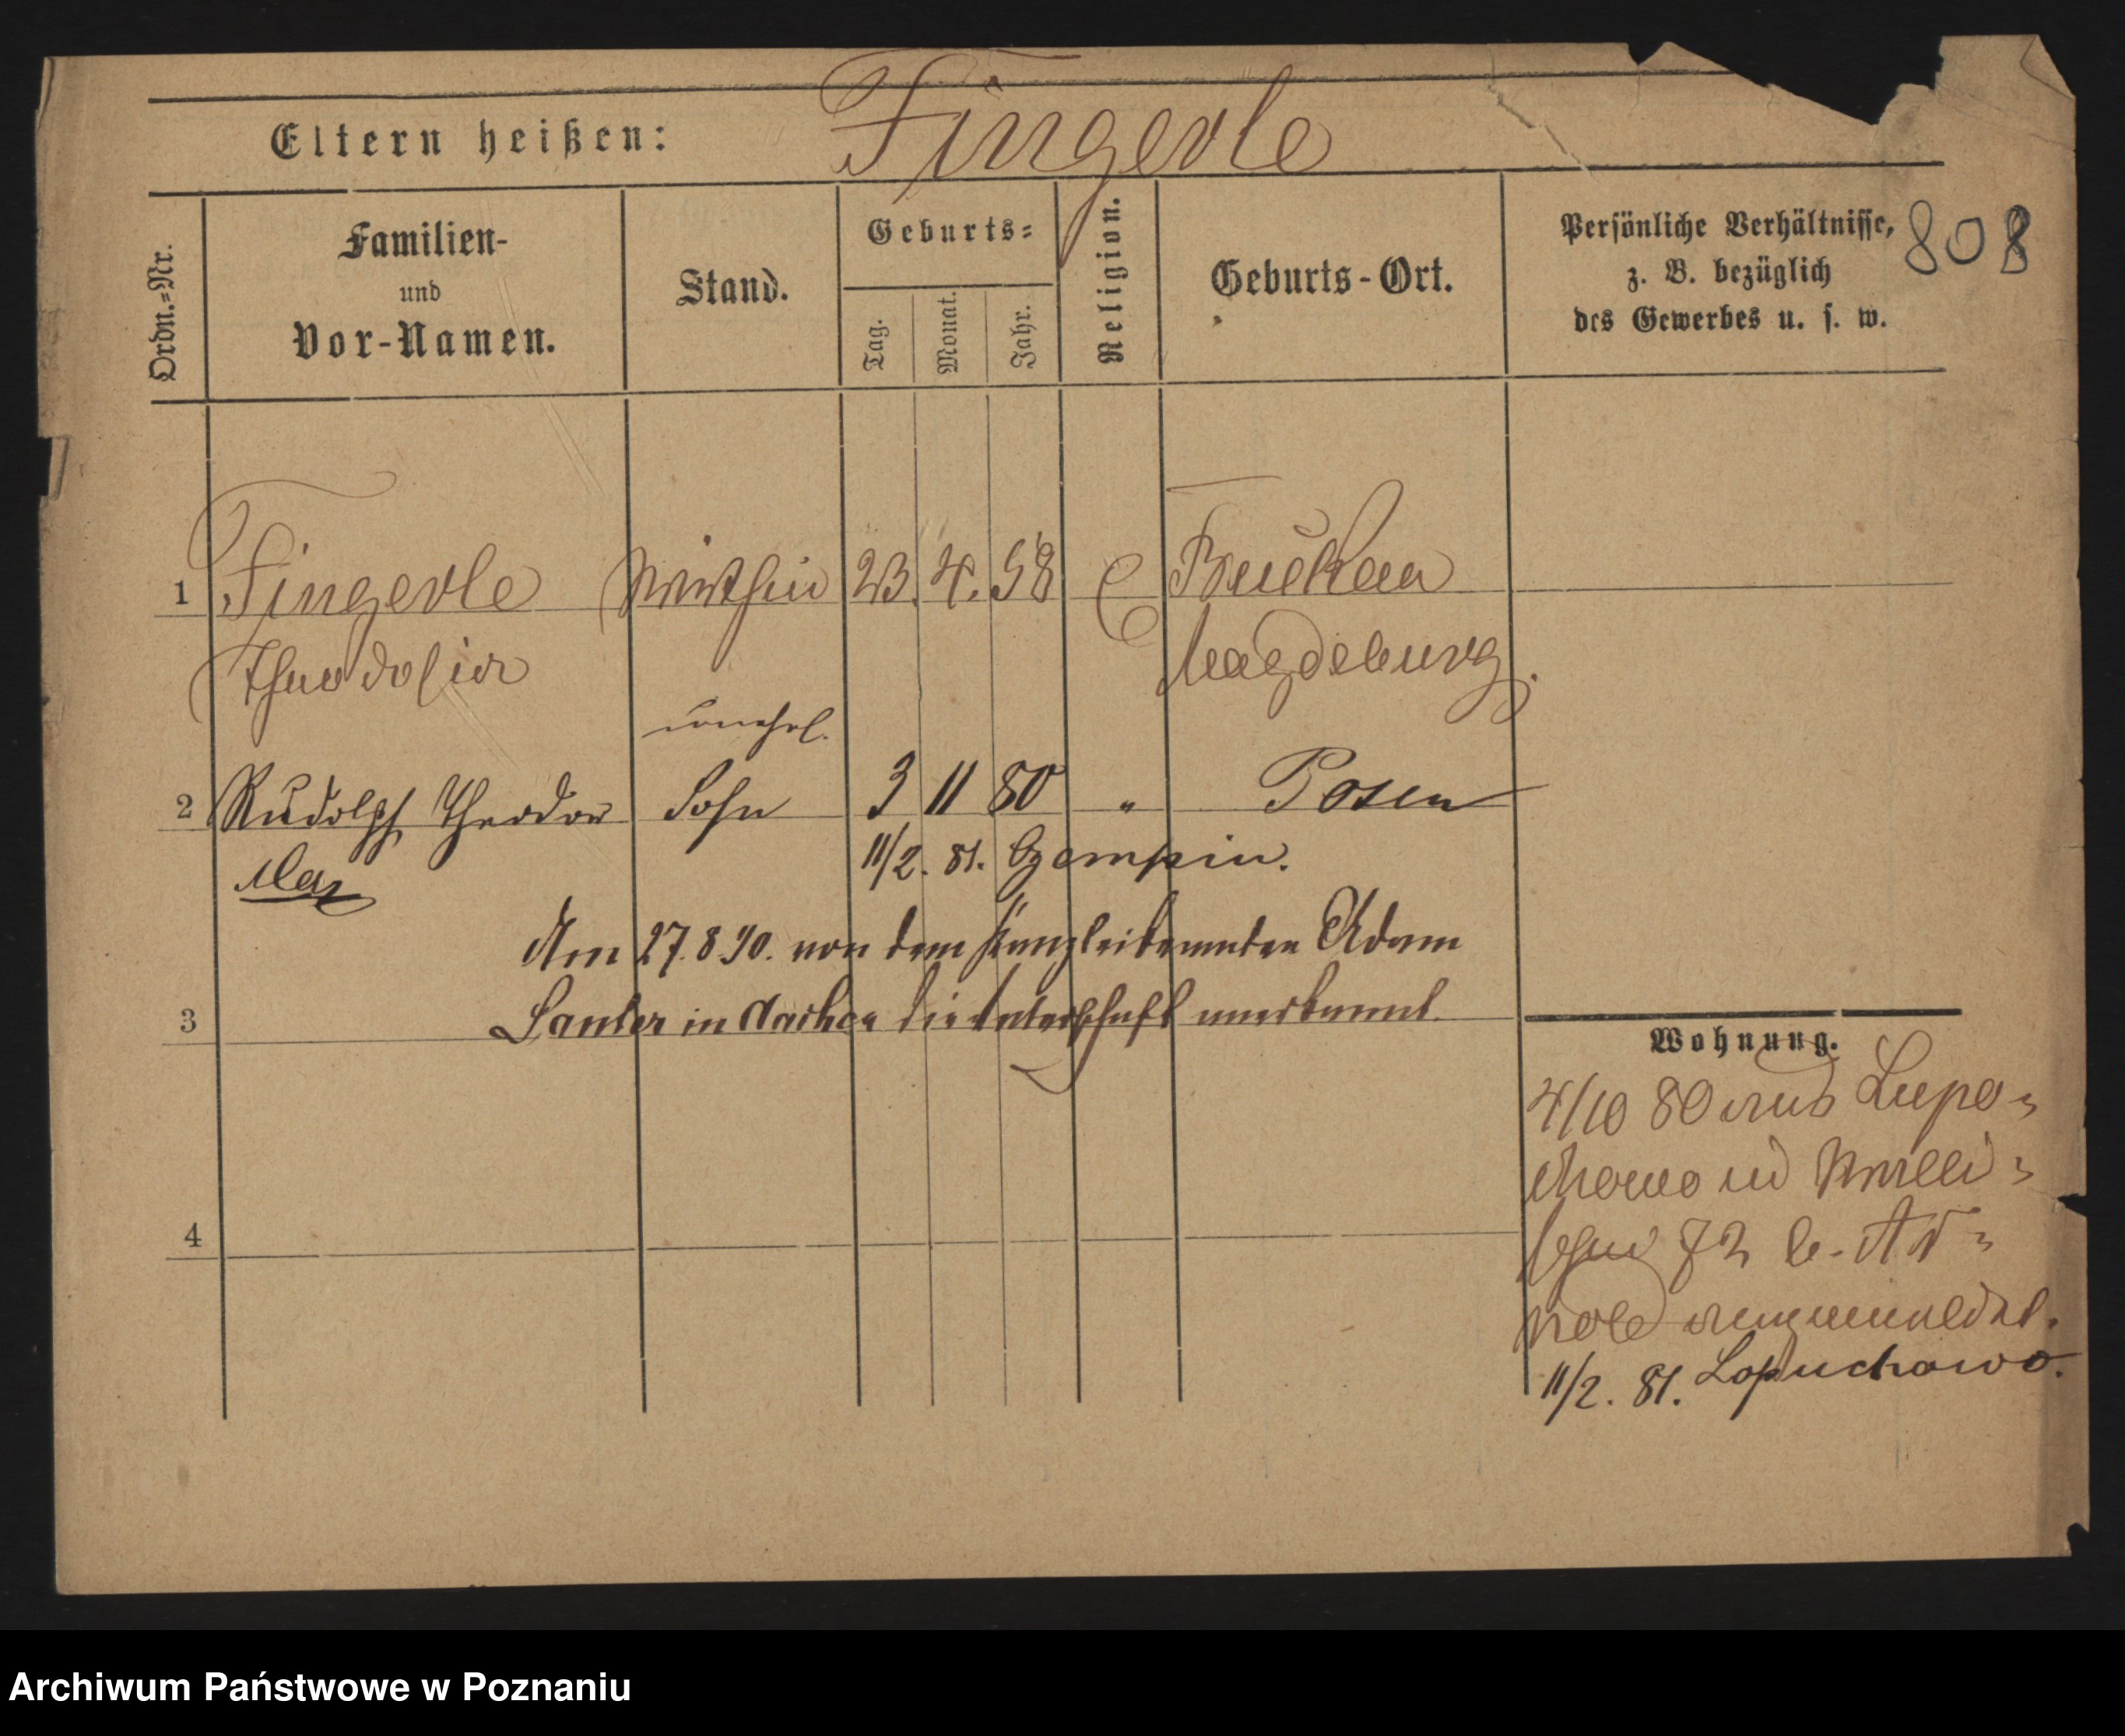 Eltern heißen: Fingerle
808
Ordn.=Nr.
Familien-
und
Vor-Namen.
Stand.
Geburts=
Tag.
Monat.
Jahr.
Religion.
Geburts-Ort.
Persönliche Verhältnisse,
z. B. bezüglich
des Gewerbes u. s. w.
1 Fingerle Wirthin 23. 4. 58 E
Theodosia Magdeburg.
unehel.
2 Rudolph Theodor Sohn 3 11 80 " Posen
Max
11/2. 81. Czempin.
Am 27.8.90. von dem Kanzleibeamten Adam
Sauter in Aachen die Vaterschaft anerkannt.
3
4
Wohnung.
4/10 80 aus Lupo=
chowo in Walli=
schei 72 b. Ar=
nold angemeldet.
11/2. 81. Lopuchowo.
Archiwum Państwowe w Poznaniu